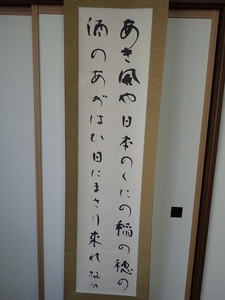 あき風や日本のくにの稲の穂の
酒のあぢはひ日にまさり来れ